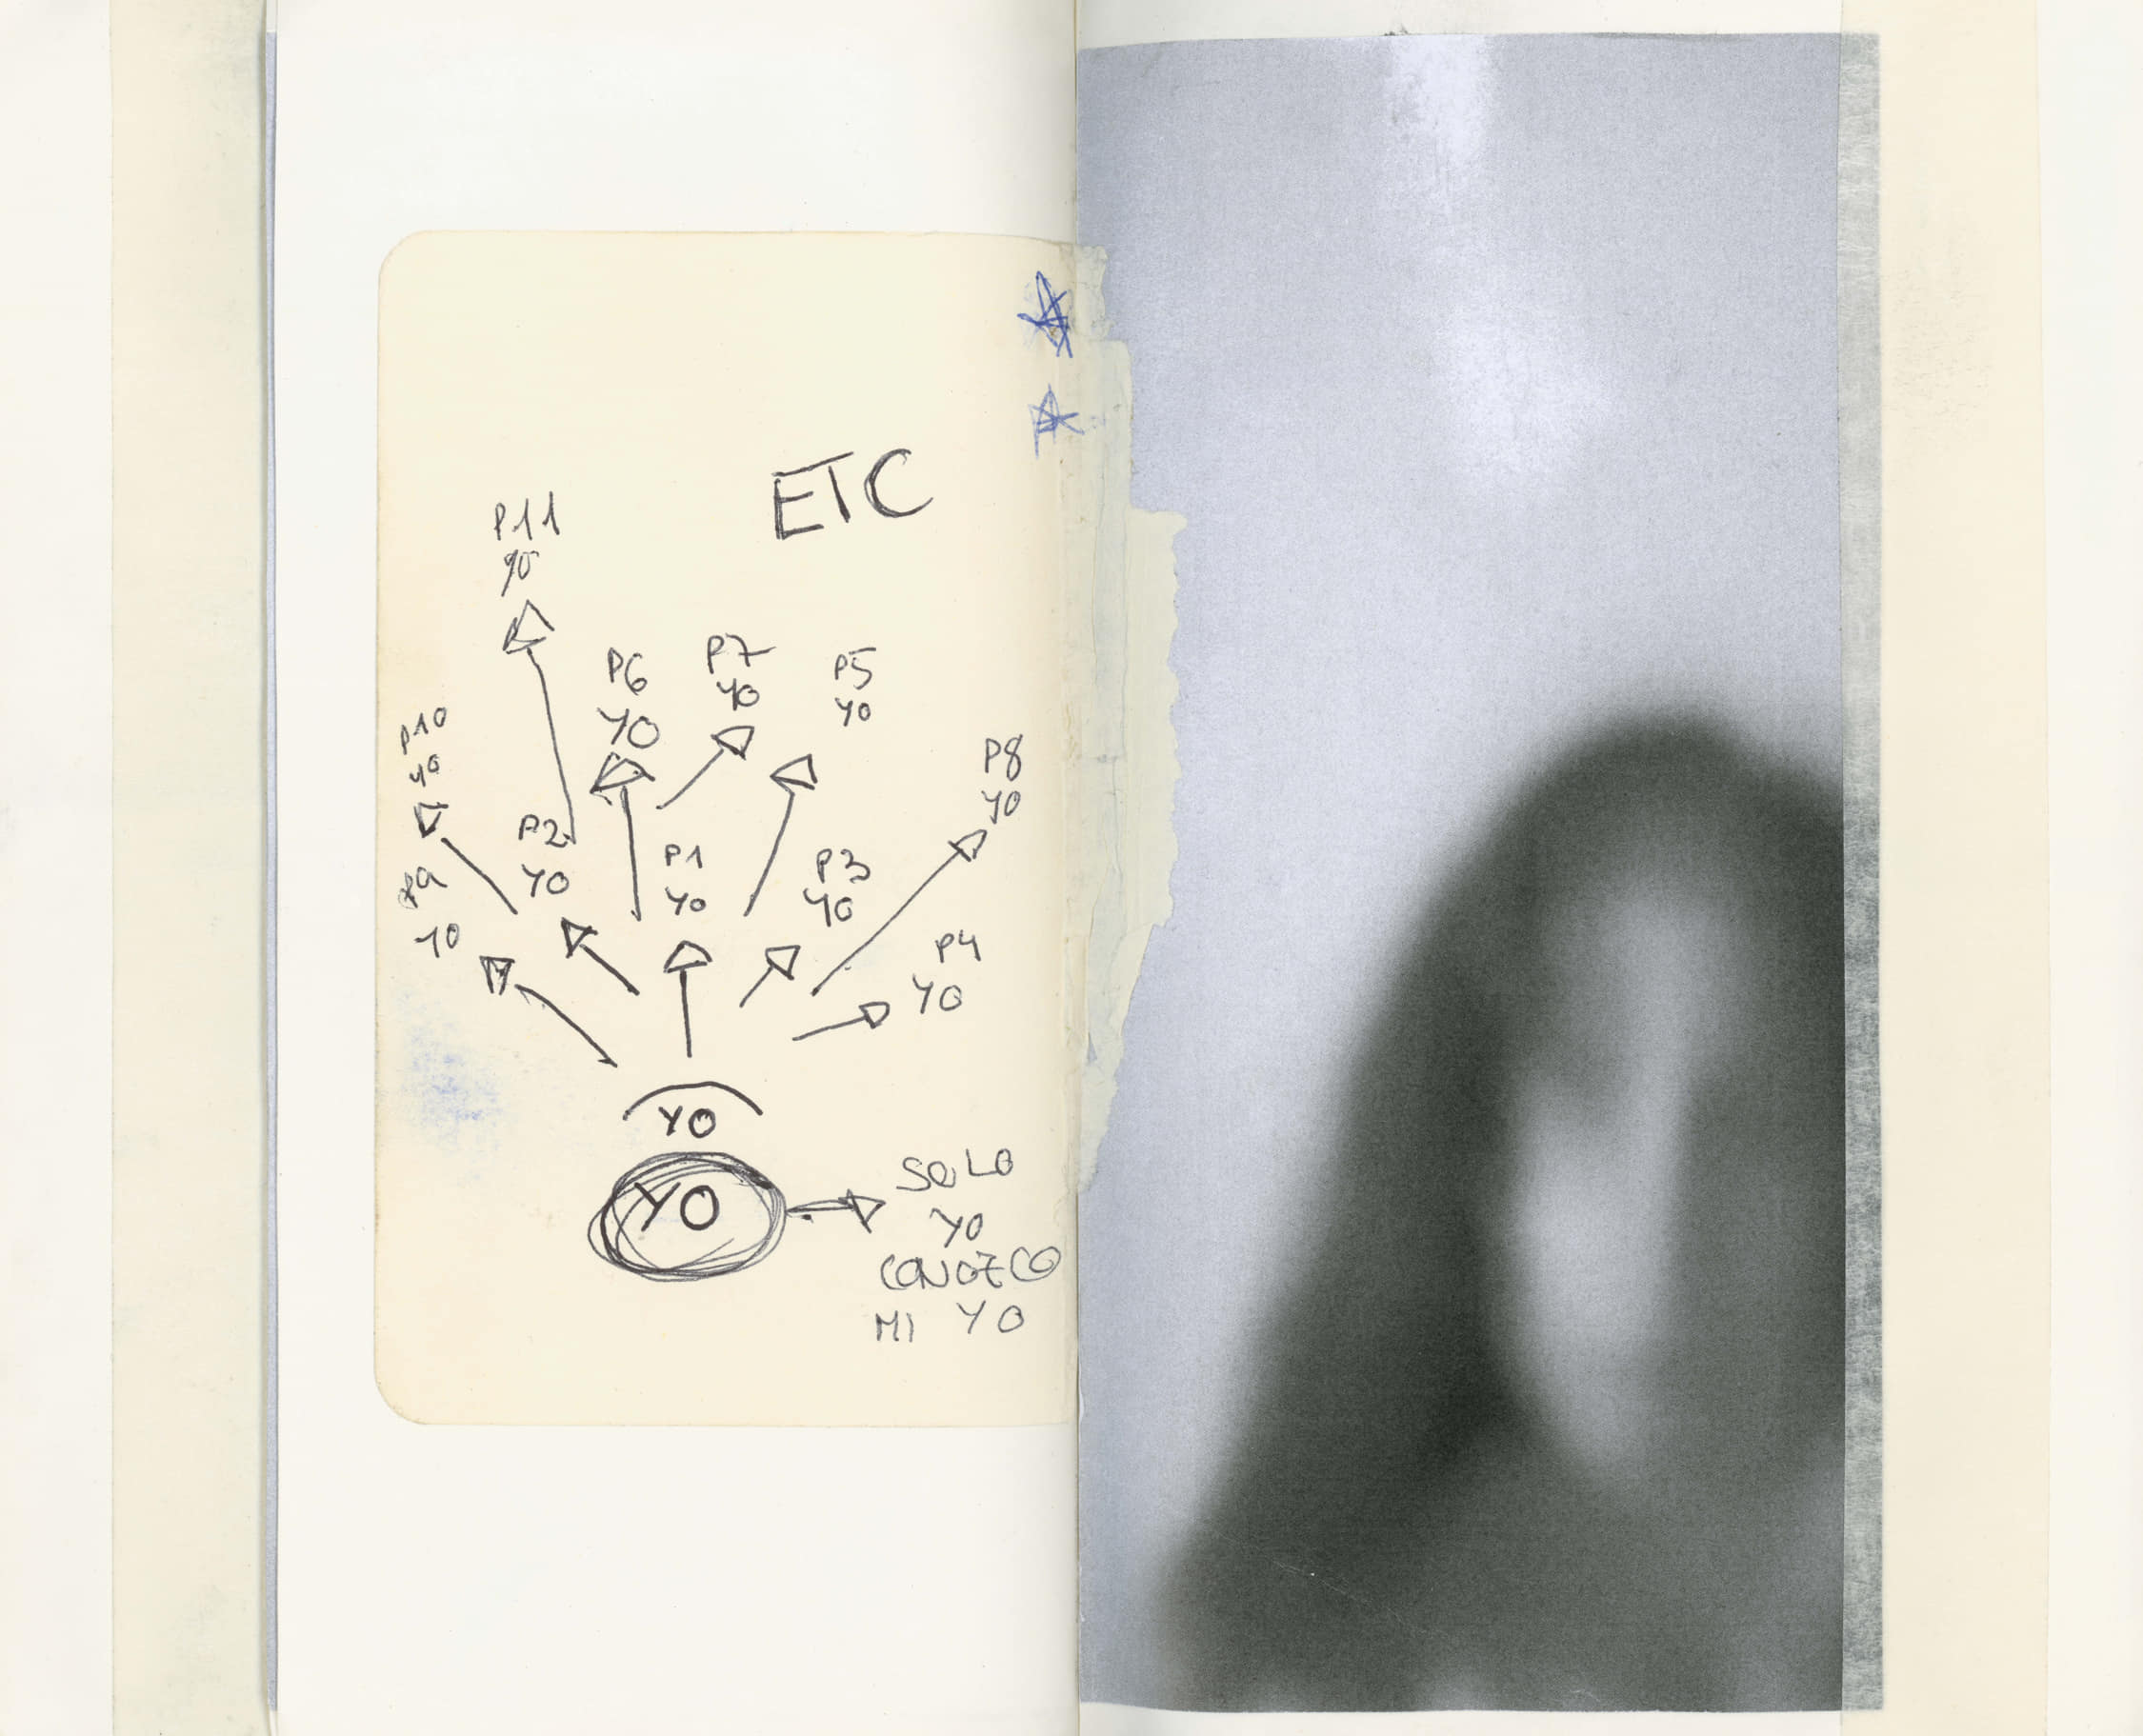 ETC
P11
YO
P6
YO
P7
YO
P5
YO
P10
YO
P8
YO
P2
YO
P1
YO
P3
YO
P9
YO
P4
YO
YO
YO
SOLO
YO
CONOZCO
MI YO